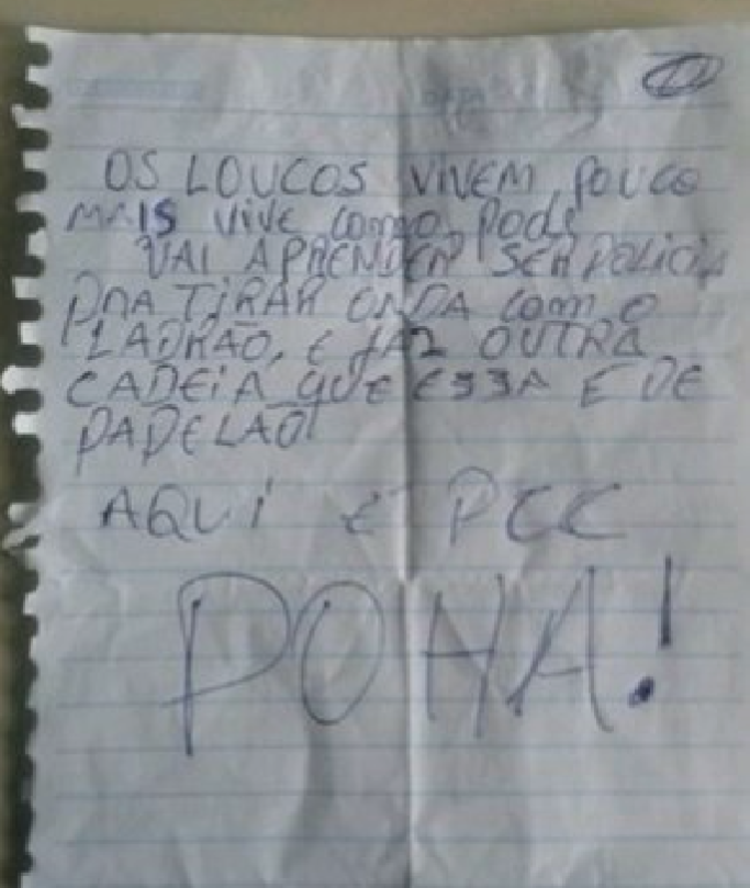 OS LOUCOS VIVEM POUCO
MAIS VIVE COMO PODE
VAI APRENDER SER POLICIA
PRA TIRAR ONDA COM O
LADRÃO, E FAZ OUTRA
CADEIA QUE ESSA E DE
PAPELÃO!
AQUI E PCC
PORA!